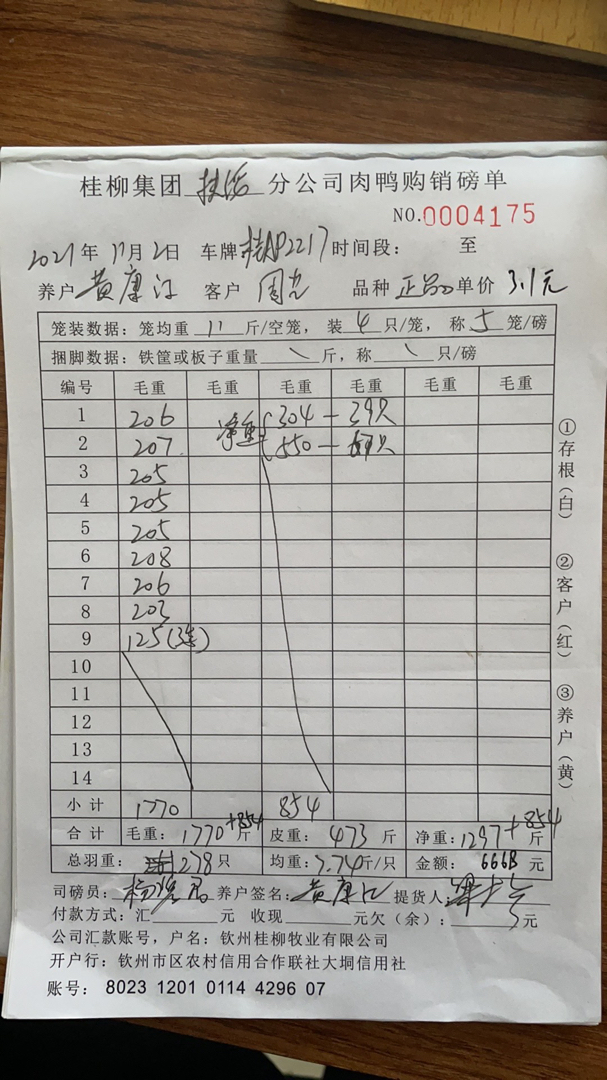 桂柳集团 分公司肉鸭购销磅单
NO.0004175
2021年11月2日 车牌桂AP2217时间段： 至
养户黄康江 客户 周光 品种 正品 单价 3.1元
笼装数据：笼均重 11 斤/空笼，装 4 只/笼，称 5 笼/磅
捆脚数据：铁筐或板子重量 斤，称 只/磅
编号 毛重 毛重 毛重 毛重 毛重 毛重
1 206 净重 304 — 39只
2 207 550 — 只
3 205
4 205
5 205
6 208
7 206
8 203
9 125(3笼)
10
11
12
13
14
小计 1770 854
合计 毛重：1770+854斤 皮重：473 斤 净重：1297+854斤
总羽重： 278只 均重：7.74斤/只 金额：6668 元
司磅员： 养户签名：黄康江 提货人：
付款方式：汇 元 收现 元欠（余）： 元
公司汇款账号，户名：钦州桂柳牧业有限公司
开户行：钦州市区农村信用合作联社大垌信用社
账号： 8023 1201 0114 4296 07
①存根（白） ②客户（红） ③养户（黄）